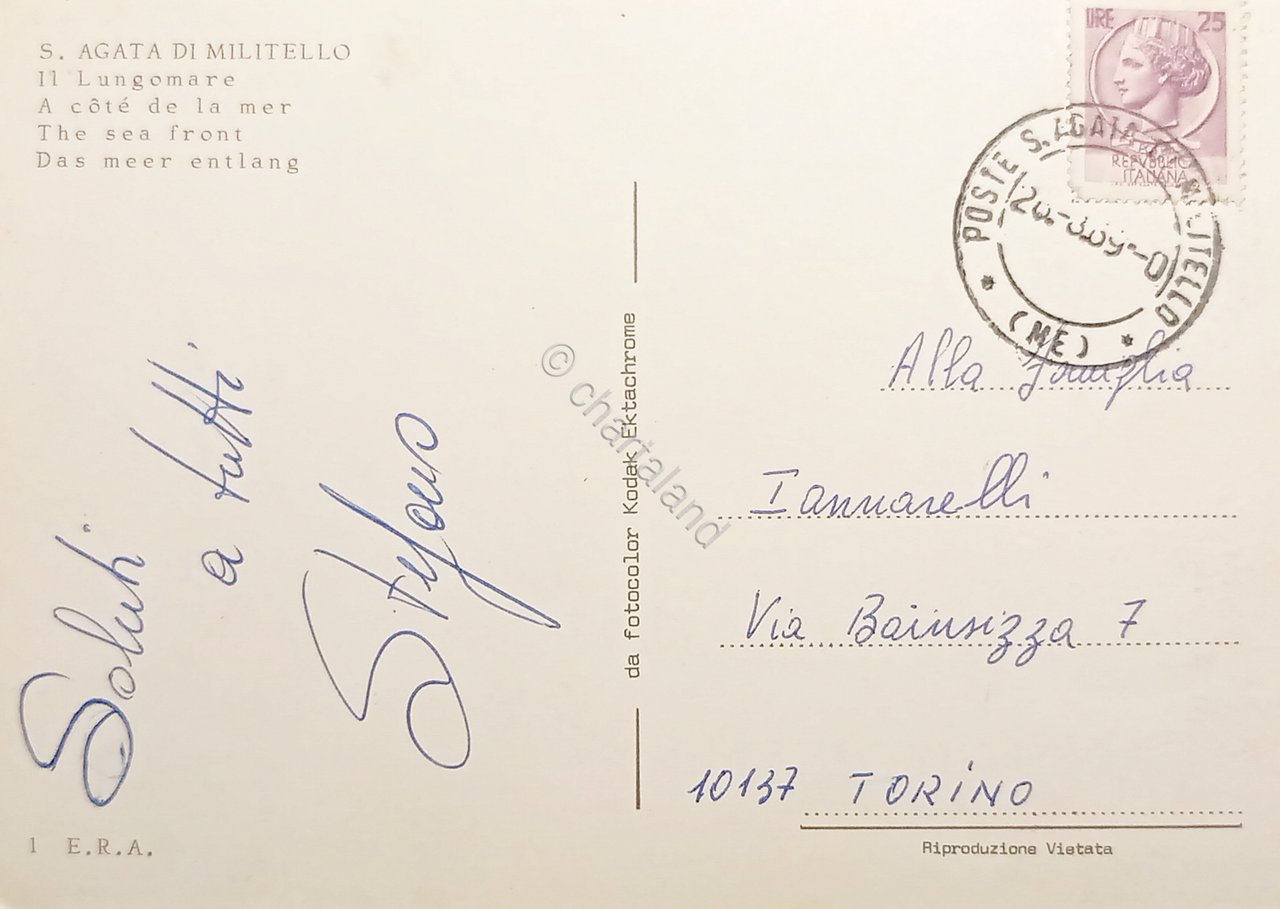 S. AGATA DI MILITELLO
Il Lungomare
A côté de la mer
The sea front
Das meer entlang
LIRE 25
REPVBBLICA
ITALIANA
POSTE S. AGATA DI MILITELLO
(ME)
Saluti
a tutti
Stefano
da fotocolor Kodak Ektachrome
© chartaland
Alla Famiglia
Iannarelli
Via Bainsizza 7
10137 TORINO
1 E.R.A.
Riproduzione Vietata